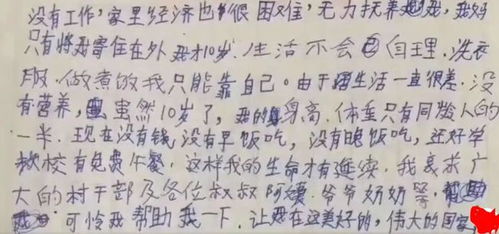 没有工作，家里经济也很困难，无力抚养我，我妈
只有将我寄住在外，我才10岁。生活不会自理。洗衣
服、做煮的我只能靠自己。由于生活一直很差。没
有营养，虽然10岁了，我的身高、体重只有同龄人的
一半。现在没有钱没有早饭吃，没有晚饭吃，还好学
校有免费午餐，这样我的生命才有延续。我哀求广
大的村干部及各位叔叔阿姨、爷爷奶奶等，
可怜我帮助我一下，让我在这美好的，伟大的国家